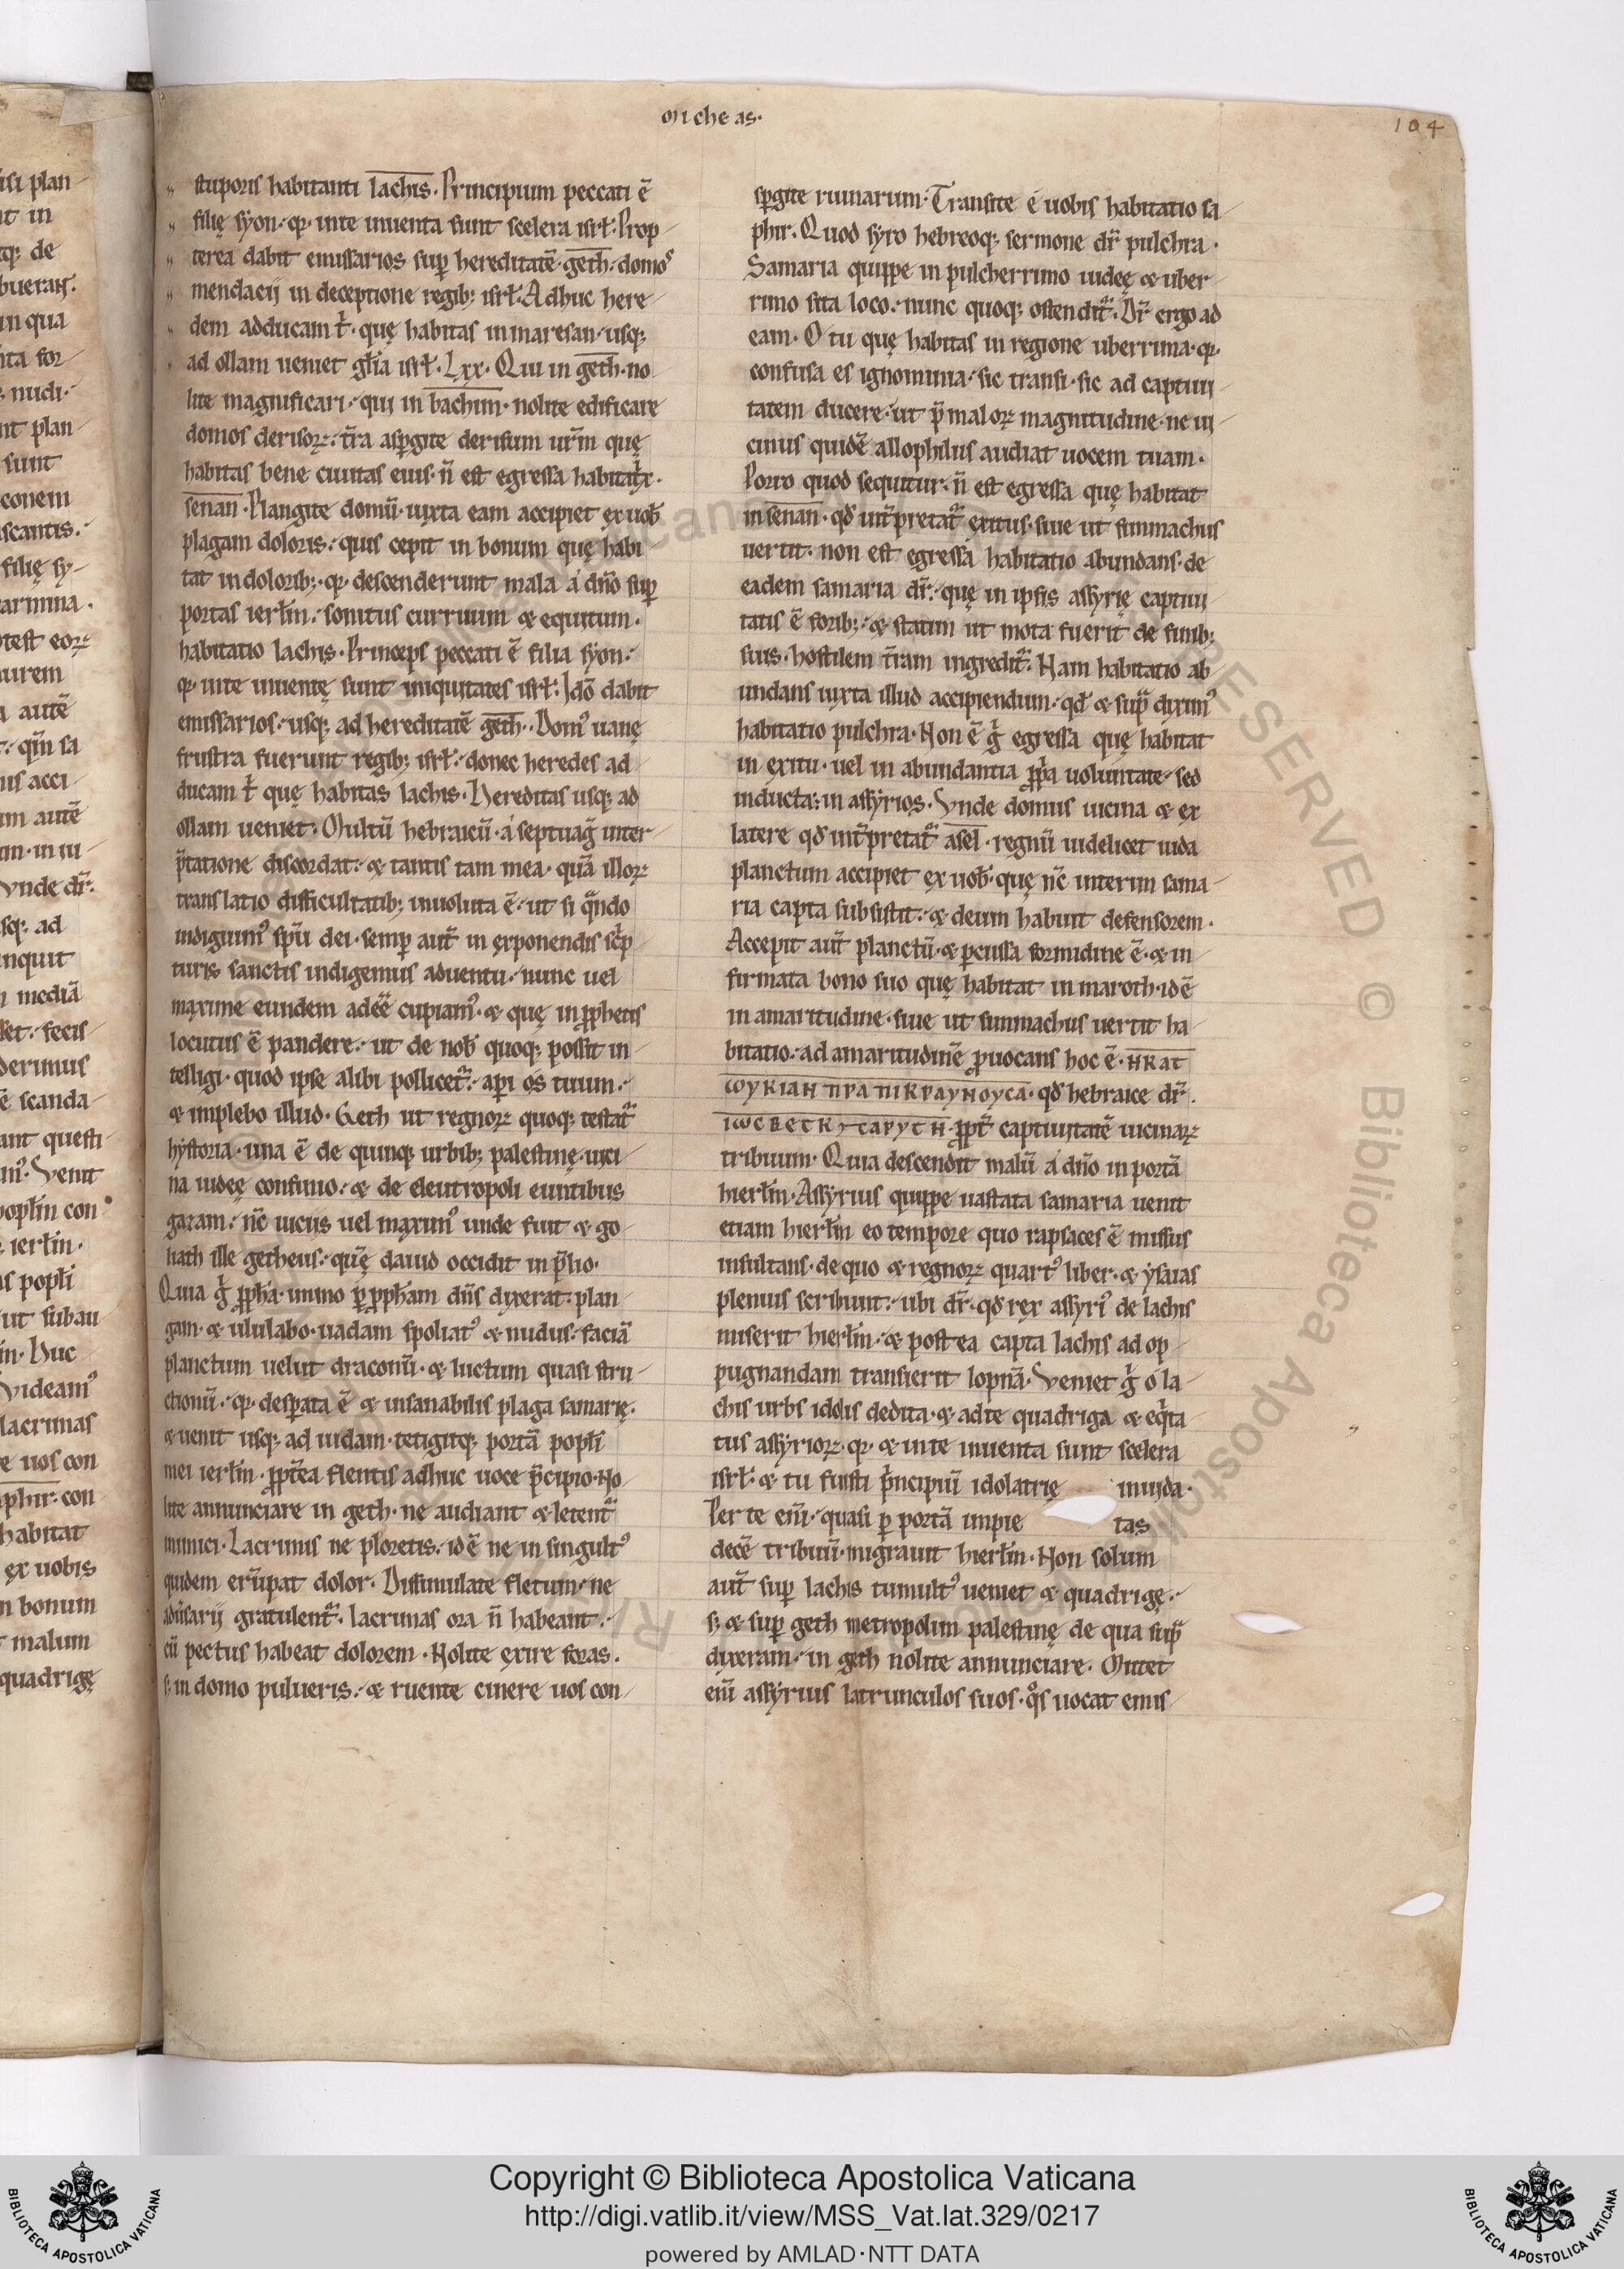 Micheas.
104
stuporis habitanti lachis. Principium peccati ē
filię syon. qr. in te inuenta sunt scelera isrł. Prop-
terea dabit emissarios sup hereditatē geth. domoˢ
mendacij in deceptione regib; isrł. Adhuc here-
dem adducam t̓. quę habitas in maresan. usq;
ad ollam ueniet gl̄ia isrł. Lxx. Qui in geth. no-
lite magnificari. qui in bachim. nolite edificare
domos derisoꝝ. t̄ra aspgite derisum ur̄m quę
habitas bene ciuitas eius. n̄ est egressa habitat̓x.
senan. Plangite domū. iuxta eam accipiet ex uob̄
plagam doloris. quis cepit in bonum quę habi-
tat in dolorib;. qr. descenderunt mala á dn̄o sup
portas ierłm. sonitus curruum & equitum.
habitatio lachis. Princeps peccati ē filia syon.
qr. in te inuentę sunt iniquitates isrł. Idō dabit
emissarios. usq; ad hereditatē geth. Domꝰ uanę
frustra fuerunt regib; isrł. donec heredes ad
ducam t̓ quę habitas lachis. Hereditas usq; ad
ollam ueniet. Multū hebraicū. á septuag̓ inter-
p̄tatione discordat. & tantis tam mea. quā illoꝝ
translatio difficultatib; inuoluta ē. ut si qn̄do
indiguimꝰ sp̄u dei. semp aut̄ in exponendis sc̓p
turis sanctis indigemus aduentu. nunc uel
maxime eundem adeē̄ cupiamꝰ. & quę in pp̄hetis
locutus ē pandere. ut de nob̄ quoq; possit in-
telligi. quod ipse alibi pollicet̓. api ós tuum.
& implebo illud. Geth ut regnoꝝ quoq; testat̓
hystoria. una ē de quinq; urbib; palestinę. uici-
na iudeę confinio. & de eleutropoli euntibus
gazam. nc̄ uicus uel maximꝰ unde fuit & go-
liath ille getheus. quē dauid occidit in p̄lio.
Quia g̓ pp̄ha. immo p̱ pp̄ham dn̄s dixerat. plan-
gam. & ululabo. uadam spoliatꝰ & nudus. faciā
planctum uelut draconū. & luctum quasi stru-
ctionū. qr. despata ē & insanabilis plaga samarię.
& uenit usq; ad iudam. tetigitq; portā popłi
mei ierłm. ppt̄ea flentis adhuc uoce p̄cipio. No-
lite annunciare in geth. ne audiant & letent̓
inimici. Lacrimis ne ploretis. idē ne in singultꝰ
quidem erūpat dolor. Dissimulate fletum. ne
adūsarij gratulent̓. lacrimas ora n̄ habeant.
cū pectus habeat dolorem. Nolite exire foras.
s; in domo pulueris. & ruente cinere uos con-
spgite ruinarum. Transite é uobis habitatio sa-
phir. Quod syro hebreoq; sermone dr̄ pulchra.
Samaria quippe in pulcherrimo iudeę & uber-
rimo sita loco. nunc quoq; ostendit̓. Dr̄ ergo ad
eam. O tu quę habitas in regione uberrima. qr.
confusa es ignominia. sic transi. sic ad captiui-
tatem ducere. ut p̄ maloꝝ magnitudine. ne ui-
cinus quidē allophilus audiat uocem tuam.
Porro quod sequitur. n̄ est egressa quę habitat
in senan. qd̄ int̓pretat̓ exitus. siue ut simmachus
uertit. non est egressa habitatio abundans. de
eadem samaria dr̄. quę in ipsis assyrię captiui-
tatis ē forib;. & statim ut mota fuerit de finib;
suis. hostilem t̄ram ingredit̓. Nam habitatio ab
undans iuxta illud accipiendum. qd̄ & sup̓ diximꝰ
habitatio pulchra. Non ē g̓ egressa quę habitat
in exitu. uel in abundantia pp̓a uoluntate. sed
inducta. in assyrios. Vnde domus uicina & ex
latere qd̄ int̓pretat̓ asel. regnū uidelicet iuda
planctum accipiet ex uob̄. quę nc̄ interim sama-
ria capta subsistit. & deum habuit defensorem.
Accepit aut̄ planctū. & pcussa formidine ē. & in-
firmata bono suo quę habitat in maroth. idē
in amaritudine. siue ut simmachus uertit ha-
bitatio. ad amaritudinē puocans hoc ē. ΗΚΑΤ
ωΥΚΙΑΗ ΠΡΑ ΠΙΚΡΑΥΝΟΥϹΑ. qd̄ hebraice dr̄.
ppt̓ captiuitatē uicinaꝝ
tribuum. Quia descendit malū á dn̄o in portā
hierłm. Assyrius quippe uastata samaria uenit
etiam hierłm eo tempore quo rapsaces ē missus
insultans. de quo & regnoꝝ quartꝰ liber. & ysaias
plenius scribunt. ubi dr̄. qd̄ rex assyriꝰ de lachis
miserit hierłm. & postea capta lachis ad op-
pugnandam transierit lopnā. Veniet g̓ ó la-
chis urbs idolis dedita. & ad te quadriga & eq̓ta
tus assyrioꝝ. qr. & in te inuenta sunt scelera
isrł. & tu fuisti p̓ncipiū idolatrię in iuda.
Per te eni̅. quasi p̱ portā impie tas
decē tribuū. migrauit hierłm. Non solum
aut̄ sup lachis tumultꝰ ueniet & quadrigę.
s; & sup geth metropolim palestinę de qua sup̓
dixeram. in geth nolite annunciare. Mittet
eni̅ assyrius latrunculos suos. qͦs uocat emis-
Copyright © Biblioteca Apostolica Vaticana
http://digi.vatlib.it/view/MSS_Vat.lat.329/0217
powered by AMLAD·NTT DATA
BIBLIOTECA APOSTOLICA VATICANA
BIBLIOTECA APOSTOLICA VATICANA